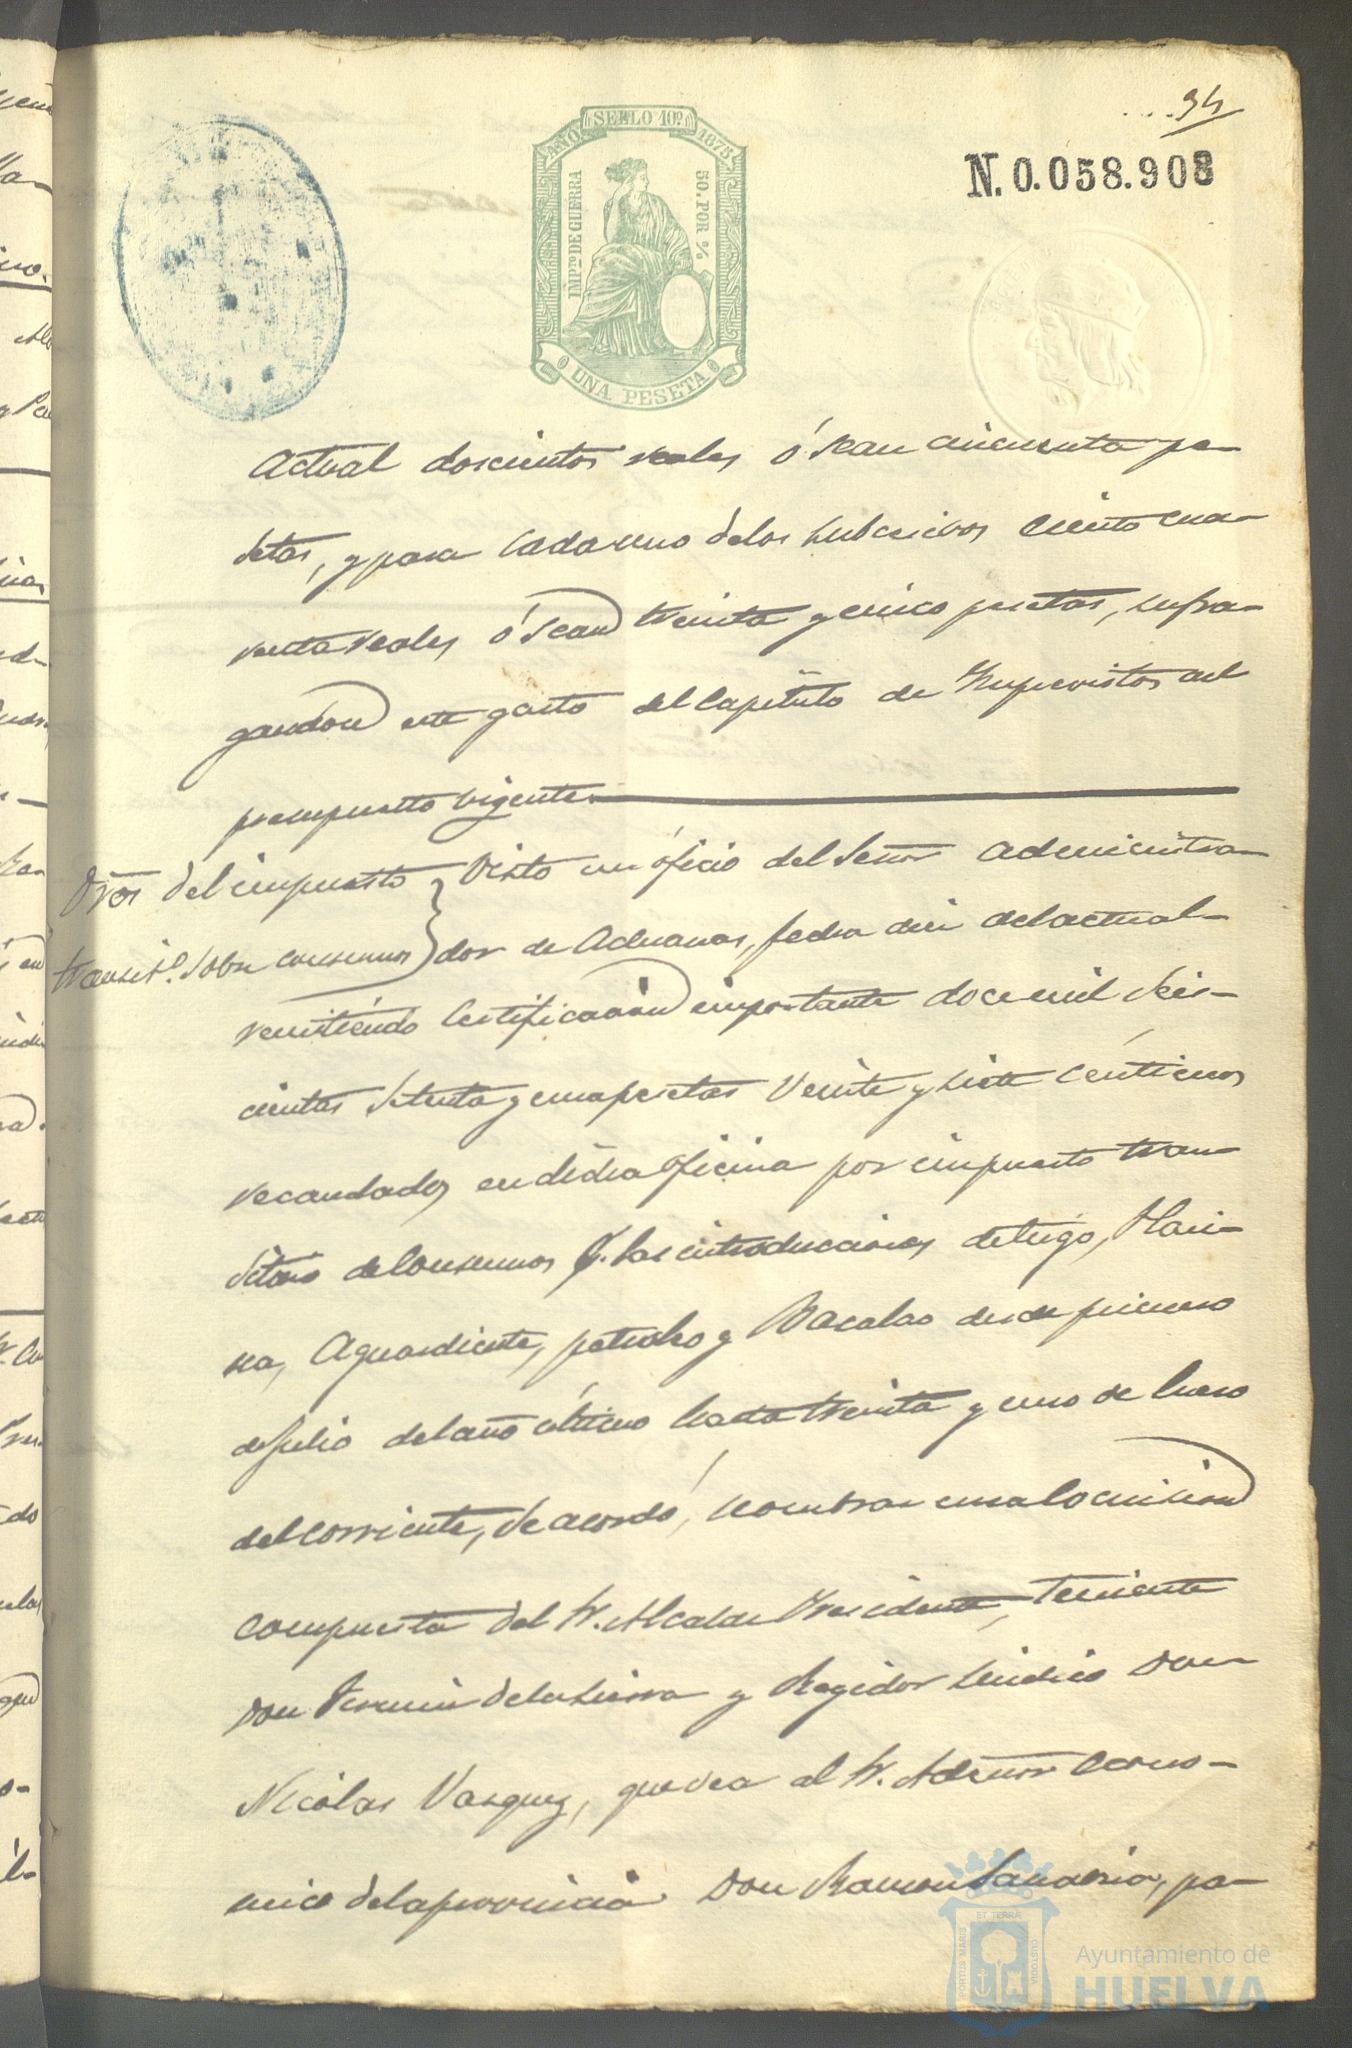 94
N. 0.058.908
SELLO 10º
AÑO 1875
IMPto DE GUERRA
50. POR %
UNA PESETA
Actual doscientos reales ó sean cincuenta pe-
setas, y para cada uno de los subcesivos ciento cua-
renta reales ó sean treinta y cinco pesetas, sufra-
gandose este gasto del Capitulo de Imprevistos del
presupuesto vigente.
Dros del impuesto
transito. sobre consumos
Visto un óficio del Señor Administra-
dor de Aduanas, fecha diez del actual
remitiendo Certificacion importante doce mil Seis-
cientas Setenta y una pesetas Veinte y siete céntimos
recaudados en dicha oficina por impuesto tran-
sitorio de Consumos p. las introducciones de trigo, Hari-
na, Aguardiente, petroleo y Bacalao desde primero
de Julio del año último hasta treinta y uno de Enero
del corriente, Se acordó, nombrar una Comision
compuesta del Sr. Alcalde Presidente, Teniente
Don Fermin de la Sierra y Regidor Sindico Don
Nicolas Vasquez, que vea al Sr. Admor Econo-
mico de la provincia Don Ramon Sanabria, pa-
PORTUS MARIS ET TERRÆ CUSTODIA
Ayuntamiento de
HUELVA